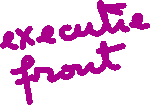 executie
front